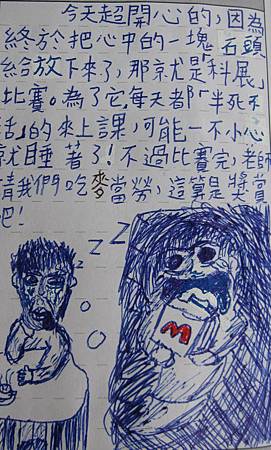 今天超開心的，因為
終於把心中的一塊石頭
給放下來了，那就是「科展」
比賽。為了它，每天都「半死不
活」的來上課，可能一不小心
就睡著了！不過比賽完，老師
請我們吃麥當勞，這算是獎賞
吧！
zz
zz
M